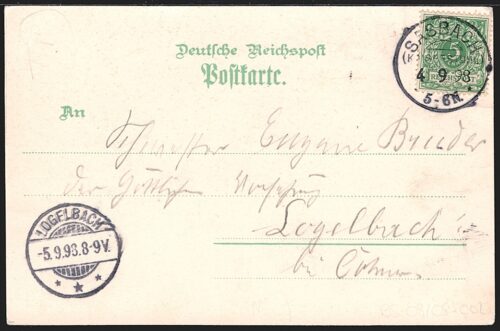 SASBACH
(KAISERSTUHL)
4. 9. 98.
5-6N.
5
Deutsche Reichspost
Postkarte.
An
Schwester Eugenie Bruder
der Göttlichen Vorsehung
Logelbach
bei Colmar
LOGELBACH
-5.9.98.8-9V.